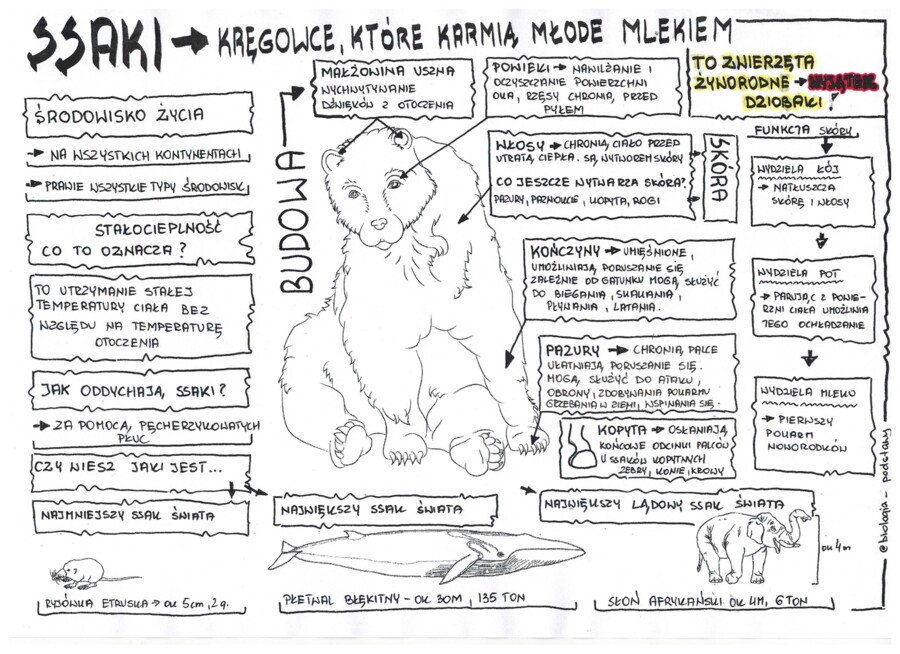 SSAKI → KRĘGOWCE, KTÓRE KARMIĄ MŁODE MLEKIEM
ŚRODOWISKO ŻYCIA
→ NA WSZYSTKICH KONTYNENTACH
→ PRAWIE WSZYSTKIE TYPY ŚRODOWISK
STAŁOCIEPLNOŚĆ
CO TO OZNACZA?
TO UTRZYMANIE STAŁEJ
TEMPERATURY CIAŁA BEZ
WZGLĘDU NA TEMPERATURĘ
OTOCZENIA
JAK ODDYCHAJĄ SSAKI?
→ ZA POMOCĄ PĘCHERZYKOWATYCH
PŁUC
CZY WIESZ JAKI JEST...
NAJMNIEJSZY SSAK ŚWIATA
RYJÓWKA ETRUSKA → OK 5CM, 2g.
BUDOWA
MAŁŻOWINA USZNA
WYCHWYTYWANIE
DŹWIĘKÓW Z OTOCZENIA
POWIEKI → NAWILŻANIE I
OCZYSZCZANIE POWIERZCHNI
OKA, RZĘSY CHRONIĄ PRZED
PYŁEM
WŁOSY → CHRONIĄ CIAŁO PRZED
UTRATĄ CIEPŁA. SĄ WYTWOREM SKÓRY
CO JESZCZE WYTWARZA SKÓRA?
PAZURY, PAZNOKCIE, KOPYTA, ROGI
SKÓRA
KOŃCZYNY → UMIĘŚNIONE,
UMOŻLIWIAJĄ PORUSZANIE SIĘ
ZALEŻNIE OD GATUNKU MOGĄ SŁUŻYĆ
DO BIEGANIA, SKAKANIA,
PŁYWANIA, LATANIA.
PAZURY → CHRONIĄ PALCE
UŁATWIAJĄ PORUSZANIE SIĘ.
MOGĄ SŁUŻYĆ DO ATAKU,
OBRONY, ZDOBYWANIA POKARMU
GRZEBANIA W ZIEMI, WSPINANIA SIĘ.
KOPYTA → OSŁANIAJĄ
KOŃCOWE ODCINKI PALCÓW
U SSAKÓW KOPYTNYCH
ZEBRY, KONIE, KROWY
NAJWIĘKSZY SSAK ŚWIATA
PŁETWAL BŁĘKITNY - OK 30M, 135 TON
NAJWIĘKSZY LĄDOWY SSAK ŚWIATA
OK 4M
SŁOŃ AFRYKAŃSKI OK 4M, 6 TON
TO ZWIERZĘTA
ŻYWORODNE → WYJĄTEK
DZIOBAKI!
FUNKCJA SKÓRY
WYDZIELA ŁÓJ
→ NATŁUSZCZA
SKÓRĘ I WŁOSY
WYDZIELA POT
→ PARUJĄC Z POWIE-
RZNI CIAŁA UMOŻLIWIA
JEGO OCHŁADZANIE
WYDZIELA MLEKO
→ PIERWSZY
POKARM
NOWORODKÓW
@biologia-podstawy